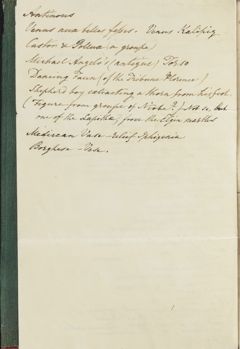 Antinous
Venus aux belles fesses. Venus Kalipig
Castor & Pollux (a groupe)
Michael Angelo's (antique) Torso
Dancing Faun (of the Tribune Florence)
Shepherd boy extracting a thorn from his foot
(Figure from groupe of Niobe?) Not so, but
one of the Lapithae, from the Elgin marbles
Medicean Vase relief Iphigenia
Borghese Vase.